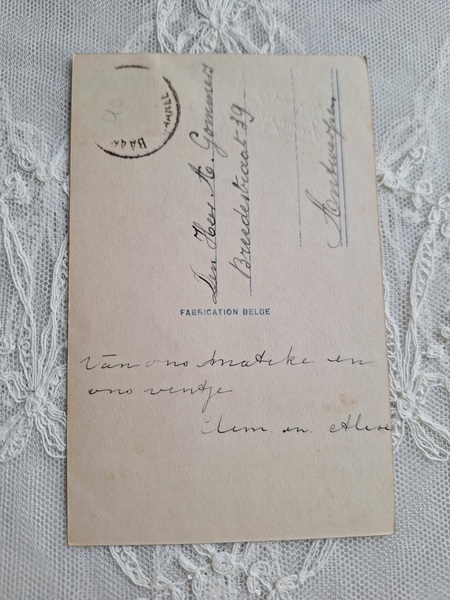 Den Heer A. Gommers
Breedestraat 39
Antwerpen
FABRICATION BELGE
Van ons en
ons ventje
en